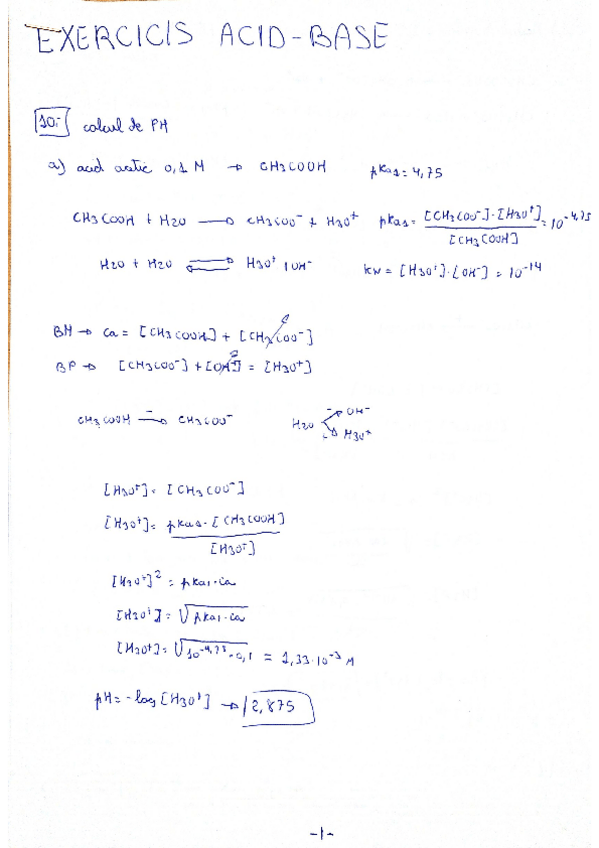 EXERCICIS ACID-BASE
10.- calcul de PH
a) acid acetic 0,1 M → CH3COOH pKa1 = 4,75
CH3COOH + H2O → CH3COO⁻ + H3O⁺ pKa1 = [CH3COO⁻]·[H3O⁺] / [CH3COOH] = 10^-4,75
H2O + H2O ⇌ H3O⁺ + OH⁻ kw = [H3O⁺]·[OH⁻] = 10^-14
BM → Ca = [CH3COOH] + [CH3COO⁻]
BP → [CH3COO⁻] + [OH⁻] = [H3O⁺]
CH3COOH → CH3COO⁻ H2O OH⁻
H3O⁺
[H3O⁺] = [CH3COO⁻]
[H3O⁺] = pKa1·[CH3COOH] / [H3O⁺]
[H3O⁺]² = pKa1·Ca
[H3O⁺] = √pKa1·Ca
[H3O⁺] = √10^-4,75·0,1 = 1,33·10^-3 M
pH = -log [H3O⁺] → 2,875
-1-